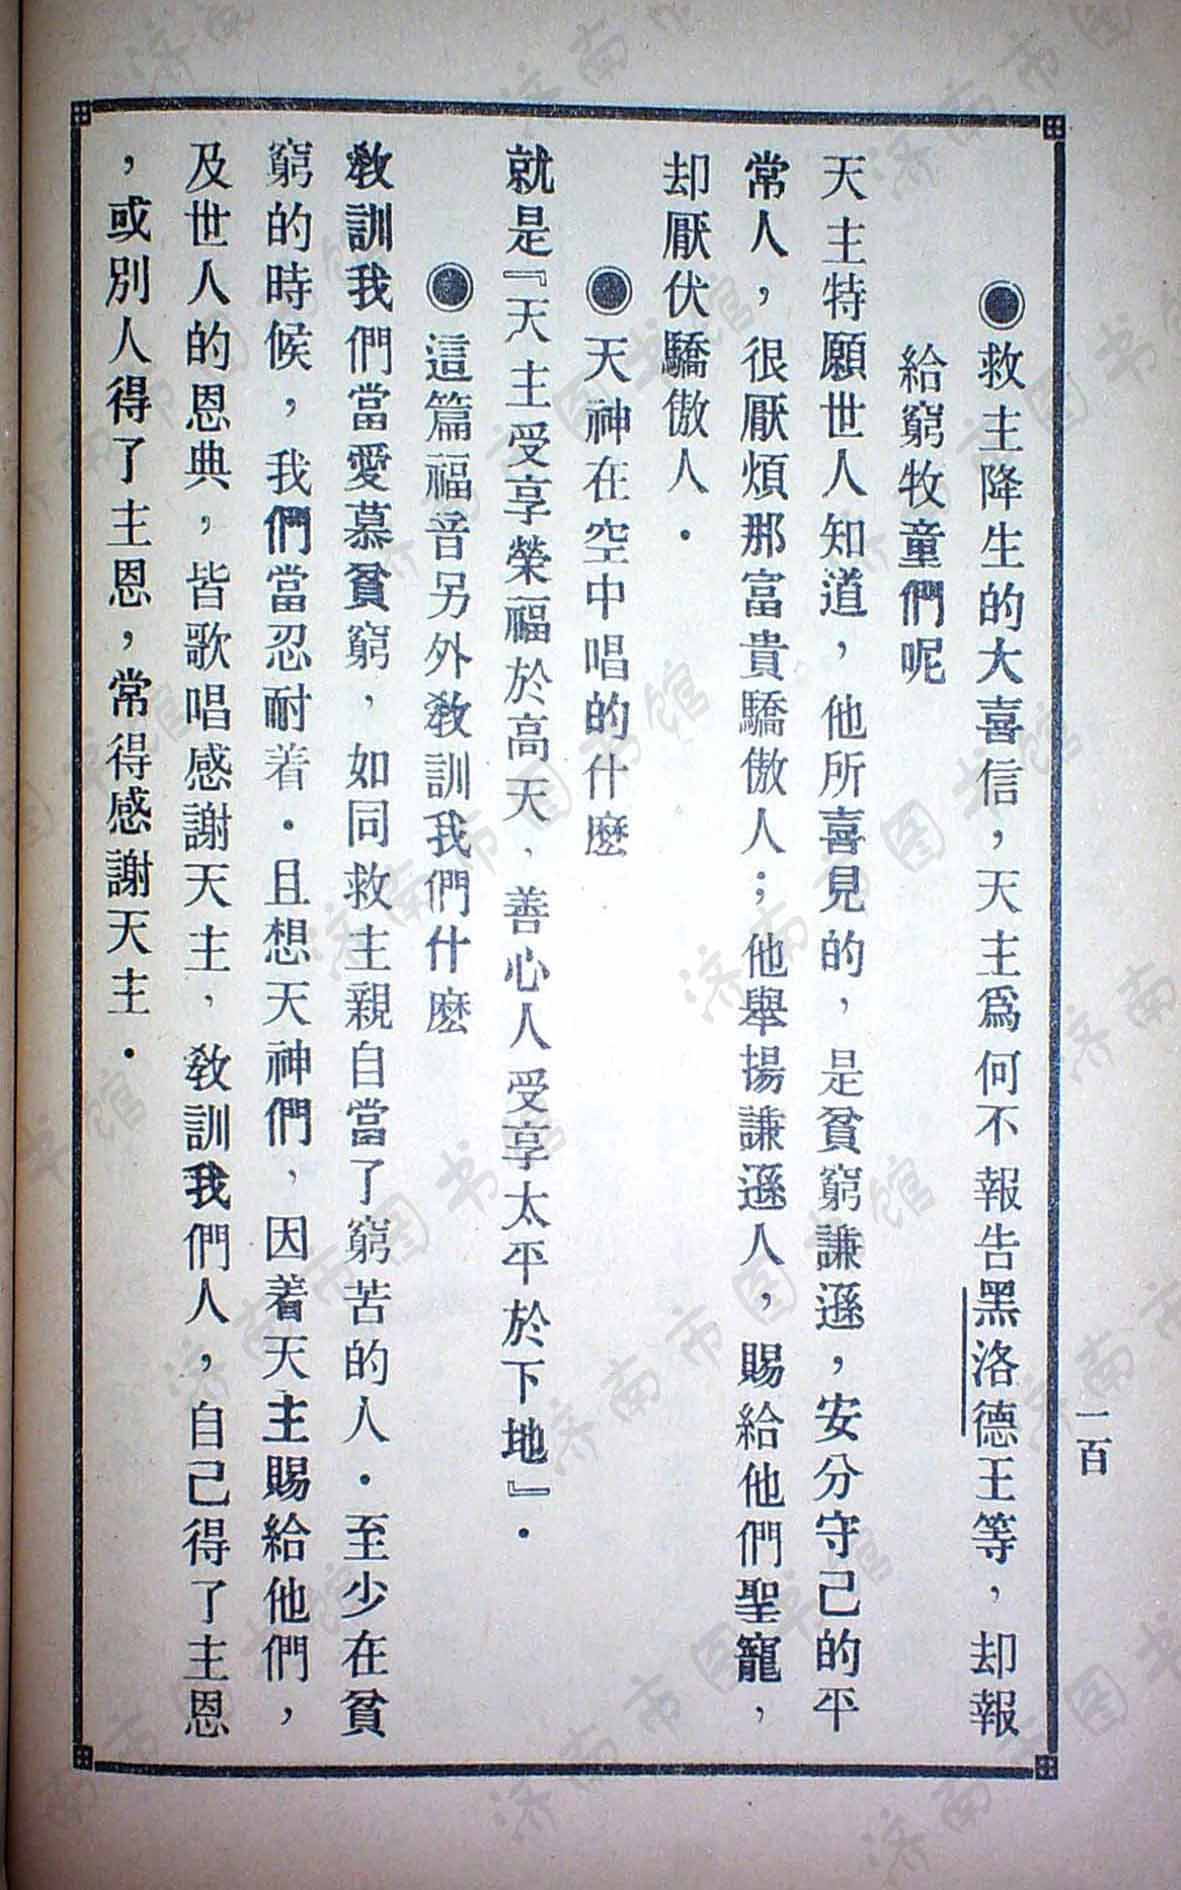 ◉救主降生的大喜信，天主爲何不報告黑洛德王等，却報
給窮牧童們呢
天主特願世人知道，他所喜見的，是貧窮謙遜，安分守己的平
常人，很厭煩那富貴驕傲人；他舉揚謙遜人，賜給他們聖寵，
却厭伏驕傲人．
◉天神在空中唱的什麼
就是『天主受享榮福於高天，善心人受享太平於下地』．
◉這篇福音另外敎訓我們什麼
敎訓我們當愛慕貧窮，如同救主親自當了窮苦的人．至少在貧
窮的時候，我們當忍耐着．且想天神們，因着天主賜給他們，
及世人的恩典，皆歌唱感謝天主，敎訓我們人，自己得了主恩
，或別人得了主恩，常得感謝天主．
一百
济南市图书馆